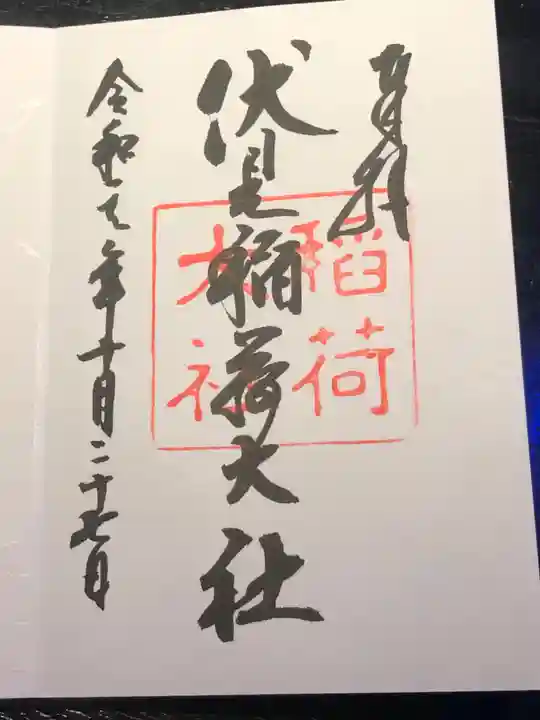 奉拝
伏見稲荷大社
稲荷
大社
令和元年十月二十七日